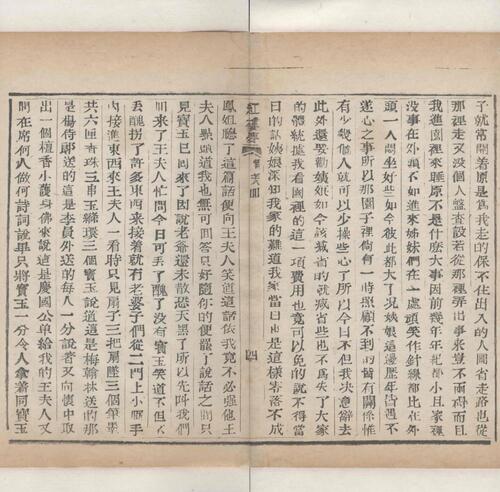 子就常開着原是為我走的保不住出入的人圖省走路也從
那裡走又没個人盤查設若從那裡弄出事來豈不兩碍而且
我進園裡來睡原不是什広大事因前幾年年紀都小且家裡
没事在外頭不如進來姊妹們在一處頑笑作針線都比在外
頭一人悶坐好些如今彼此都大了况姨娘這邊歷年皆遇不
遂心之事所以那園子裡倘有一時照顧不到的皆有關係惟
有少幾個人就可以少操些心了所以今日不但我决意辭去
此外還要勸姨娘如今該减省的就减省些也不為失了大家
的體統據我看園裡的這一項費用也竟可以免的說不得當
日的話姨娘深知我家的難道我家當日也是這樣零落不成
紅樓夢
四
鳳姐聽了這篇話便向王夫人笑道這話依我竟不必强他王
夫人點頭道我也無可回答只好隨你的便罷了說話之間只
見寶玉已回來了因說老爺還未散恐天黑了所以先叫我們
回來了王夫人忙問今日可丢了醜了没有寶玉笑道不但不
丢醜拐了許多東西來接着就有老婆子們從二門上小厮手
内接進東西來王夫人一看時只見扇子三把扇墜三個筆墨
共六匣香珠三串玉縧環三個寶玉說道這是梅翰林送的那
是楊侍郎送的這是李員外送的每人一分說着又向懷中取
出一個檀香小護身佛來說這是慶國公單給我的王夫人又
問在席何人做何詩詞說畢只將寶玉一分令人拿着同寶玉